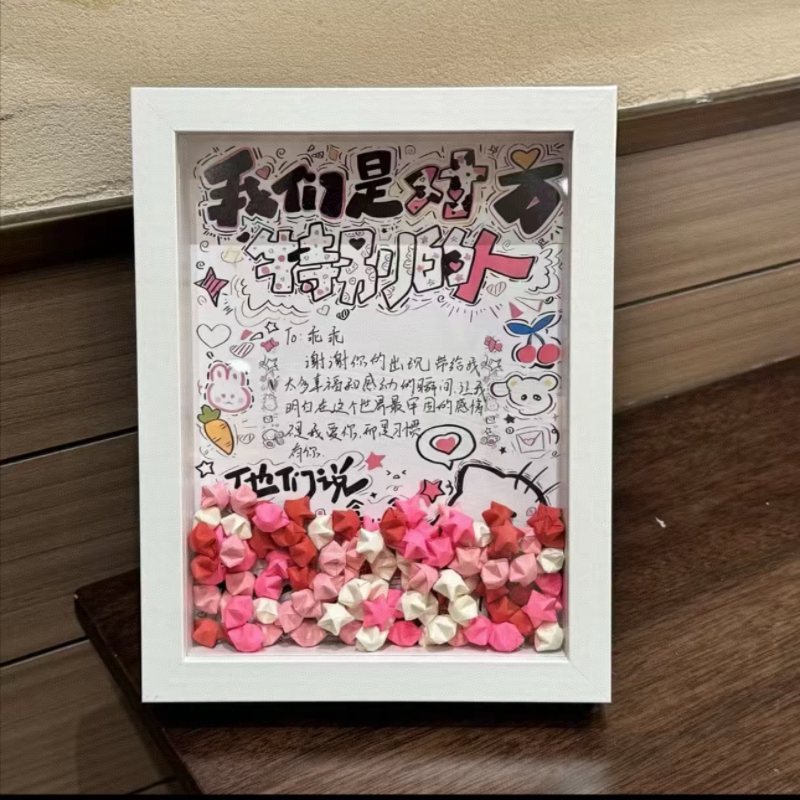 我们是对方
特别的人
To: 乖乖
谢谢你的出现,带给我
太多幸福和感动的瞬间,让我
明白在这个世界最牢固的感情
不是我爱你,而是习惯
有你.
他们说